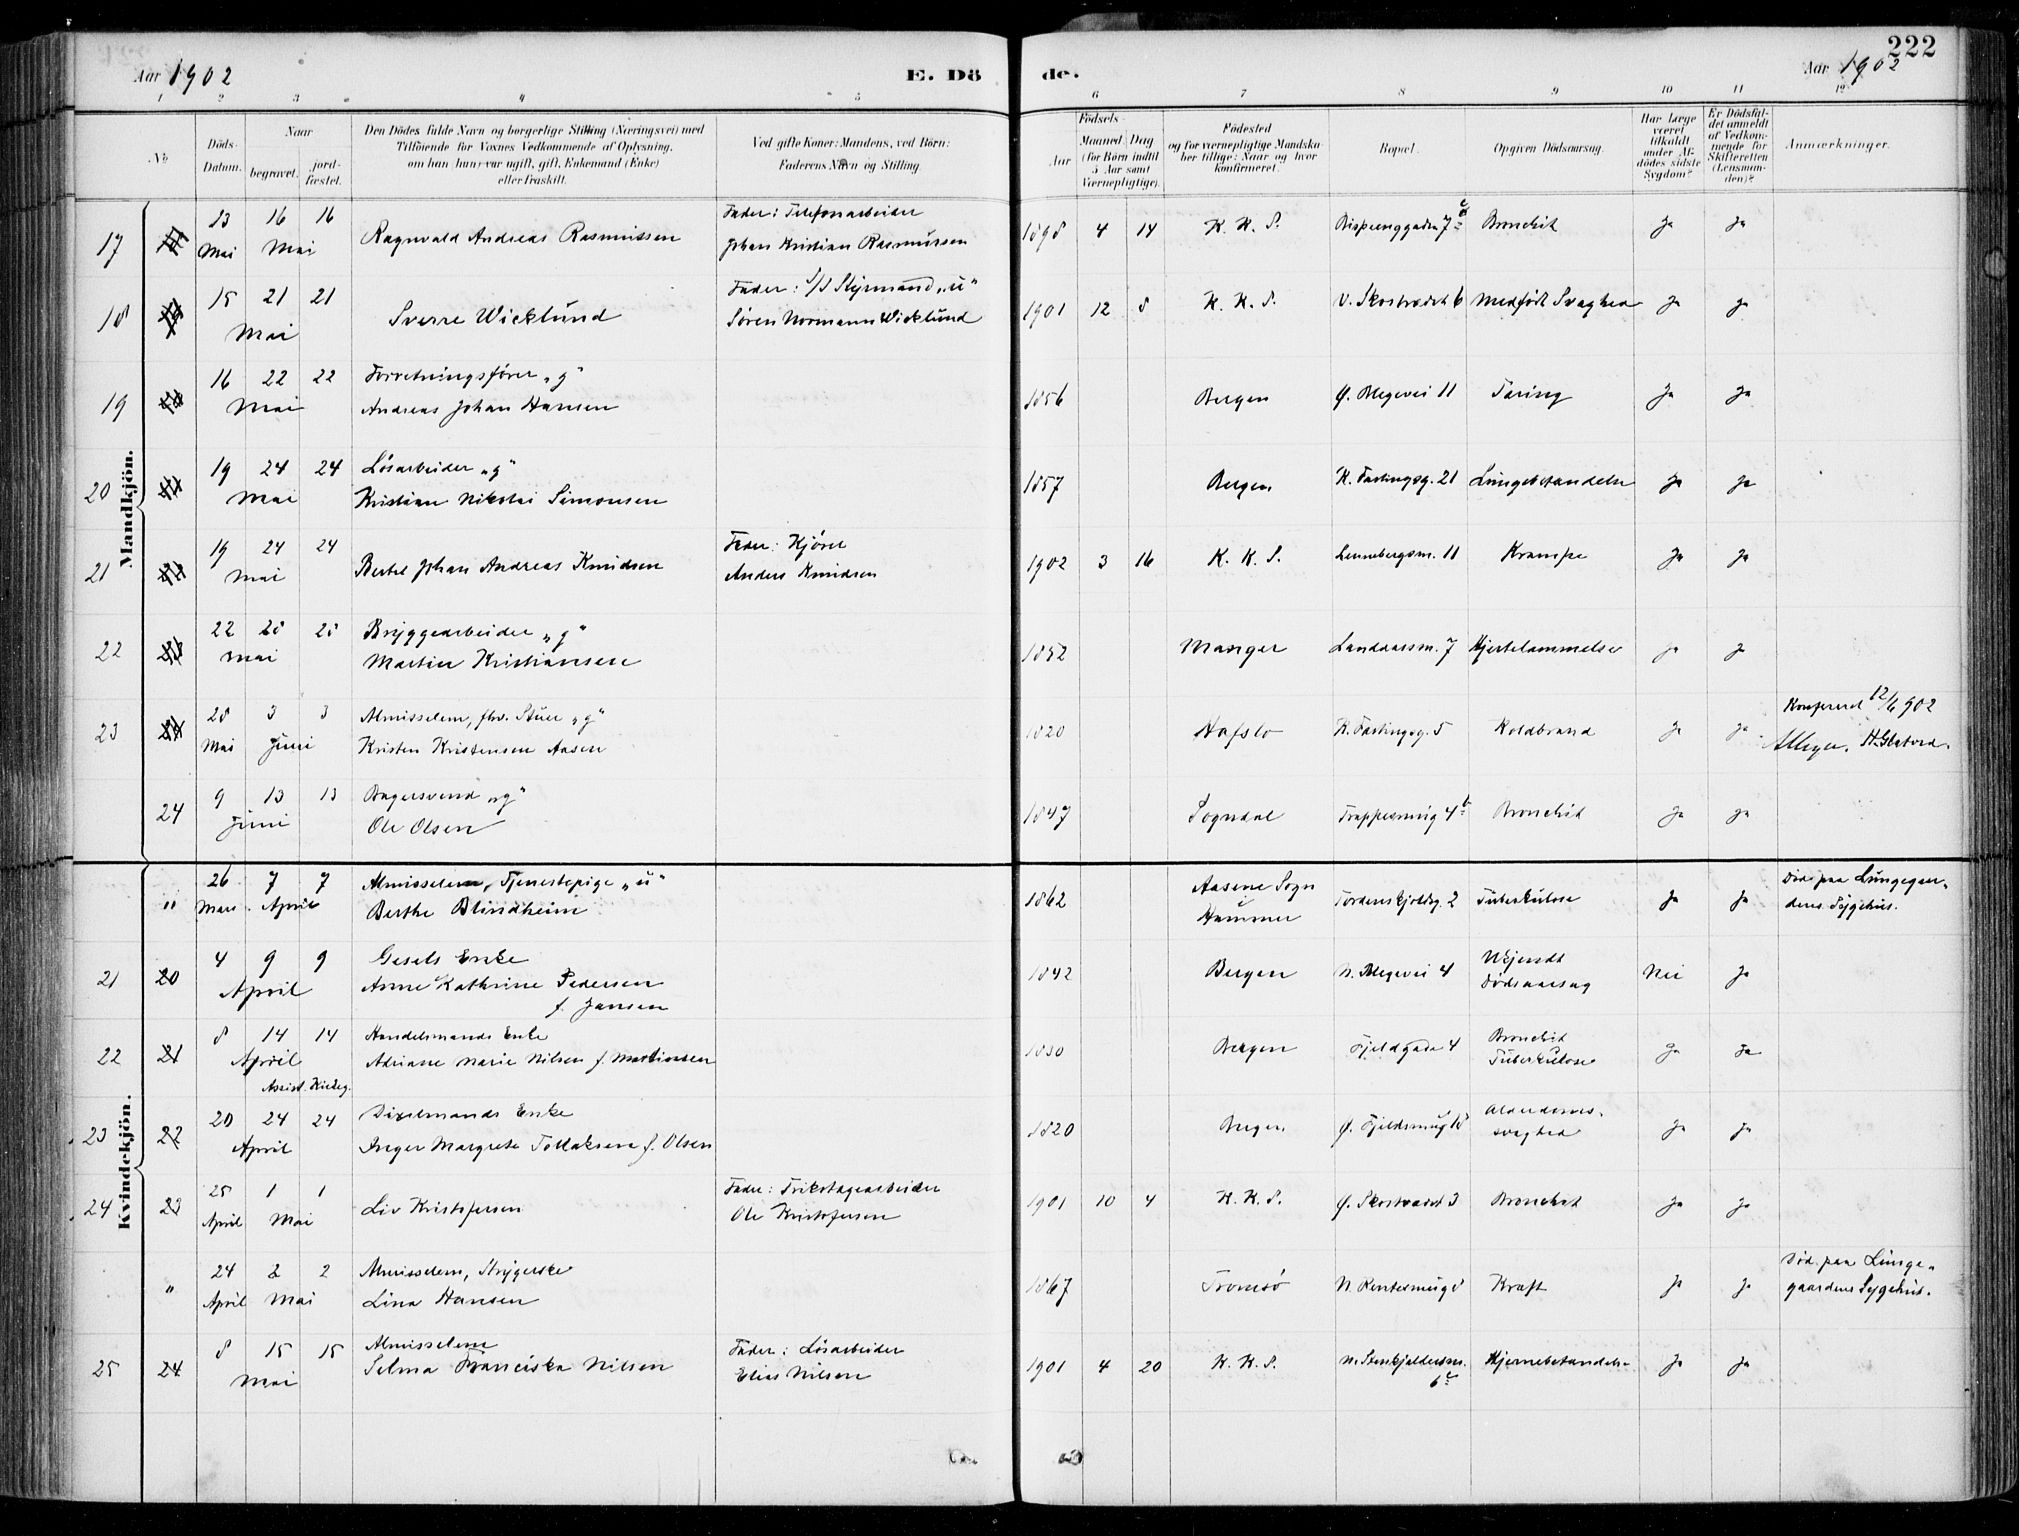 222
Aar 1902 E. Dö de. Aar 1902
1 2 3 4 5 6 7 8 9 10 11 12
No
Döds-Datum.
Naar
begravet. jordfæstet.
Den Dödes fulde Navn og borgerlige Stilling (Næringsvei) med
Tilföiende for Voxnes Vedkommende af Oplysning,
om han (hun) var ugift, gift, Enkemand (Enke)
eller fraskilt.
Ved gifte Koner: Mandens, ved Börn:
Faderens Navn og Stilling.
Födsels-
Aar
Maaned Dag
(for Börn indtil
5 Aar samt
Værnepligtige).
Födested
og for værnepligtige Mandskaber tillige: Naar og hvor
konfirmeret.
Bopæl.
Opgiven Dödsaarsag.
Har Læge
været
tilkaldt
under Afdödes sidste
Sygdom?
Er Dödsfaldet anmeldt
af Vedkommende for
Skifteretten
(Lensmanden)?
Anmærkninger.
Mandkjön.
17 13 Mai 16 16 Mai Ragnvald Andreas Rasmussen Fader: Telefonarbeider
Johan Kristian Rasmussen 1898 4 14 K. K. S. Bronchit Ja Ja
18 15 21 21 Mai Sverre Wicklund Fader: S/S Styrmand „u“
Søren Normann Wicklund 1901 12 8 K. K. S. V. Skostrædet 6 Medfødt Svaghed Ja Ja
19 16 22 22 Mai Forretningsfører „g“
Andreas Johan Hansen 1856 Bergen Ø. Blegevei 11 Tæring Ja Ja
20 19 24 24 Mai Løsarbeider „g“
Kristian Nikolai Simonsen 1857 Bergen K. Fastingsg. 21 Lungebetændelse Ja Ja
21 19 24 24 Mai Bertel Johan Andreas Knudsen Fader: Kjører
Anders Knudsen 1902 3 16 K. K. S. 11 Krampe Ja Ja
22 22 28 28 Mai Bryggearbeider „g“
Martin Kristiansen 1852 Manger Landaassm. 7 Hjertelammelse Ja Ja
23 28 Mai 3 3 Juni Almisselem, fhv. „g“
Kristen Kristensen Aasen 1820 Hafslo K. Fastingsg. 5 Koldbrand Ja Ja Konfereret 12/6 902
24 9 13 13 Juni Bagersvend „g“
Ole Olsen 1847 Sogndal 4 b Bronchit Ja Ja
Kvindekjön.
" 26 Mars 7 7 April Almisselem, Tjenestepige „u“
Berthe Blindheim 1862 Aasene Sogn
Hammer Tordenskjoldsg. 2 Tuberkulose Ja Ja Død paa Lungegaar-
dens Sygehus.
21 20 4 9 9 April Gesels Enke
Anne Kathrine Pedersen
f. Jansen 1842 Bergen N. Blegevei 4 Ukjendt
Dødsaarsag Nei Ja
22 21 8 14 14 April Handelsmands Enke
Adriane Marie Nilsen f. Martinsen 1830 Bergen Fjeldgade 4 Bronchit
Tuberkulose Ja Ja
Assist. Kirkeg.
23 22 20 24 24 April Enke
Inger Margrete Tollaksen f. Olsen 1820 Bergen Ø. Fjeldsmug Alderdoms-
svaghed Ja Ja
24 23 25 April 1 1 Mai Liv Kristofersen Fader: Trikotagearbeider
Ole Kristofersen 1901 10 4 K. K. S. Ø. Skostrædet 3 Bronchit Ja Ja
" 24 April 2 2 Mai Almisselem, Strygerske
Lina Hansen 1867 Tromsø Kræft Ja Ja Død paa Lunge-
gaardens Sygehus.
25 24 8 15 15 Mai Almisselem
Selma Franciska Nilsen Fader: Løsarbeider
Elias Nilsen 1901 4 20 K. K. S. 6 c Hjernebetændelse Ja Ja